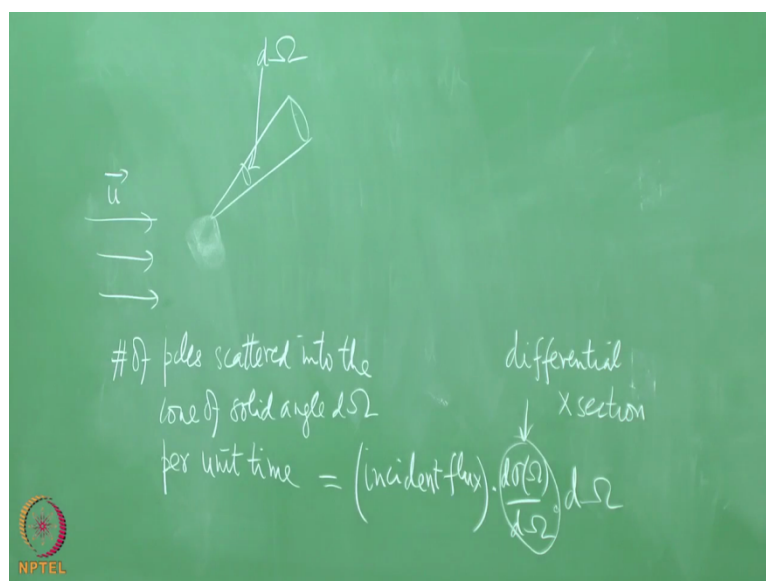 dΩ
u⃗
# of pcles scattered into the
cone of solid angle dΩ
per unit time = (incident flux) · dσ(Ω)/dΩ dΩ
differential
X section
NPTEL